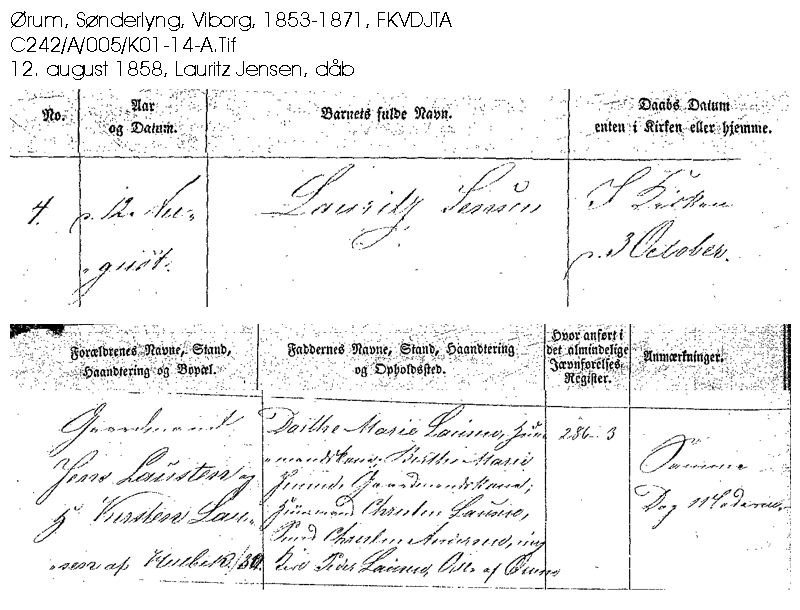 Ørum, Sønderlyng, Viborg, 1853-1871, FKVDJTA
C242/A/005/K01-14-A.Tif
12. august 1858, Lauritz Jensen, dåb
No.
Aar
og Datum.
Barnets fulde Navn.
Daabs Datum
enten i Kirken eller hjemme.
4.
d. 12. Au-
-gust.
Lauritz Jensen
I Kirken
d. 3 October.
Forældrenes Navne, Stand,
Haandtering og Bopæl.
Faddernes Navne, Stand, Haandtering
og Opholdssted.
Hvor anført i
det almindelige
Jævnførelses-
Register.
Anmærkninger.
Gaardmand
Jens Lausten og
H. Kirsten Lau-
-sen af
Dorthe Marie
Birthe Marie
Gaardmandskone,
Huusmand Christen
Christen Andersen,
Peder af Ørum
286. 3
Samme
Dag Moderen.